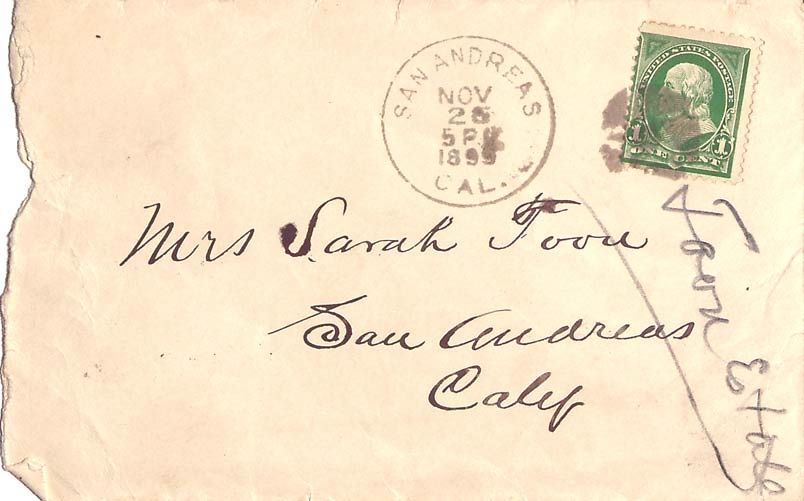 SAN ANDREAS
NOV
25
5 P
1899
CAL.
UNITED STATES POSTAGE
1 1
ONE CENT
Mrs Sarah
San Andreas
Calif
Estate